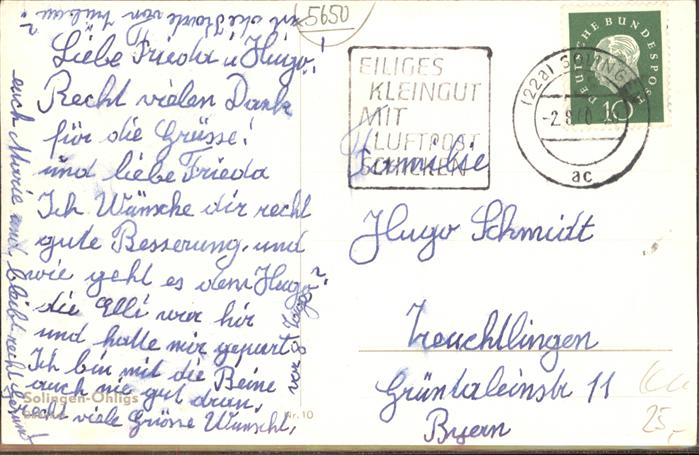 5650
Liebe Frieda u Hugo!
Recht vielen Dank
für die Grüsse!
und liebe Frieda
Ich Wünsche dir recht
gute Besserung. und
wie geht es dem Hugo?
die Elli war hir
und hatte mir gesagt.
Ich bin mit die Beine
auch nie gut dran,
recht viele Grüsse Wünscht,
euch Marie und bleibt recht gesund
vor 3 Tage
Solingen-Ohligs
Nr. 10
EILIGES
KLEINGUT
MIT
LUFTPOST
SCHICKEN
(22a) SOLINGEN
-2.8.60
ac
DEUTSCHE BUNDESPOST
10
Familie
Hugo Schmidt
Treuchtlingen
Grüntaleinstr 11
Byern
25,-